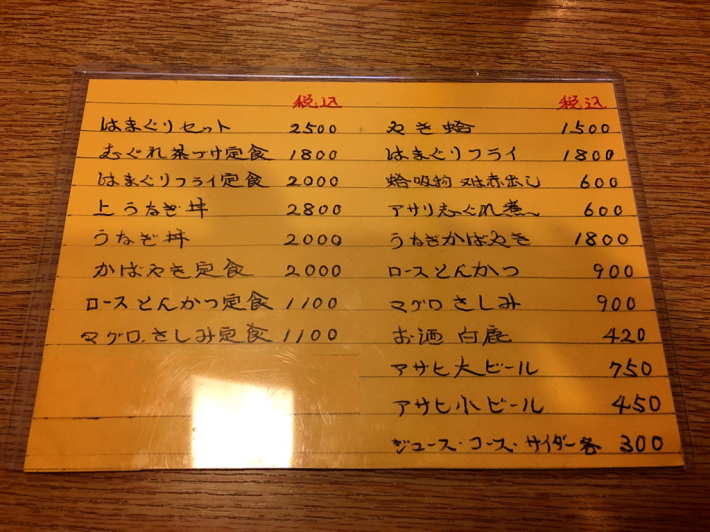 税込
はまぐりセット 2500
志ぐれ茶づけ定食 1800
はまぐりフライ定食 2000
上うなぎ丼 2800
うなぎ丼 2000
かばやき定食 2000
ロースとんかつ定食 1100
マグロさしみ定食 1100
税込
やき蛤 1500
はまぐりフライ 1800
蛤吸物 又は赤出し 600
アサリ志ぐれ煮 600
うなぎかばやき 1800
ロースとんかつ 900
マグロさしみ 900
お酒 白鹿 420
アサヒ大ビール 750
アサヒ小ビール 450
ジュース・コース・サイダー各 300